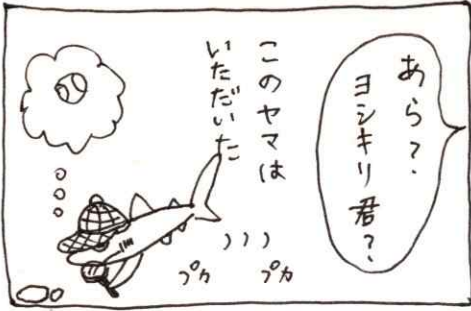 あら？
ヨシキリ君？
このヤマは
いただいた
プカ
プカ